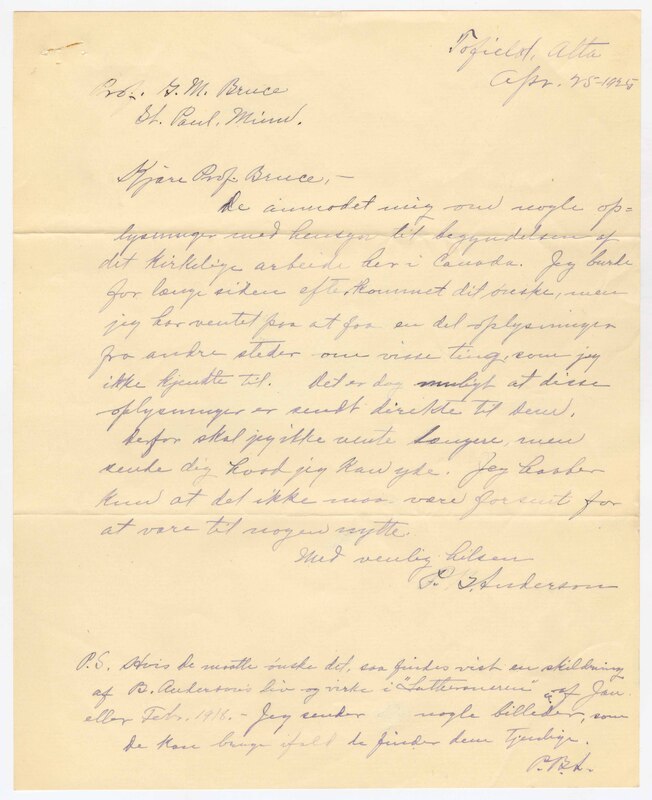 Tofield, Alta
Apr. 25-1925
Prof. G. M. Bruce
St. Paul, Minn.
Kjære Prof. Bruce,-
De anmodet mig om nogle op=
lysninger med hensyn til begyndelsen af
det kirkelige arbeide her i Canada. Jeg burde
for længe siden efterkommet dit ønske, men
jeg har ventet paa at faa en del oplysninger
fra andre steder om visse ting, som jeg
ikke kjendte til. Det er dog muligt at disse
oplysninger er sendt direkte til dem.
Derfor skal jeg ikke vente længere, men
sende dig hvad jeg kan yde. Jeg haaber
kun at det ikke maa være forsent for
at være til nogen nytte.
Med venlig hilsen
P. B. Anderson
P.S. Hvis De maatte ønske det, saa findes vist en skildring
af B. Anderson's liv og virke i "Lutheraneren" af Jan.
eller Feb. 1918.- Jeg sender nogle billeder, som
De kan bruge ifald de finder dem tjenlige.
P.B.A.